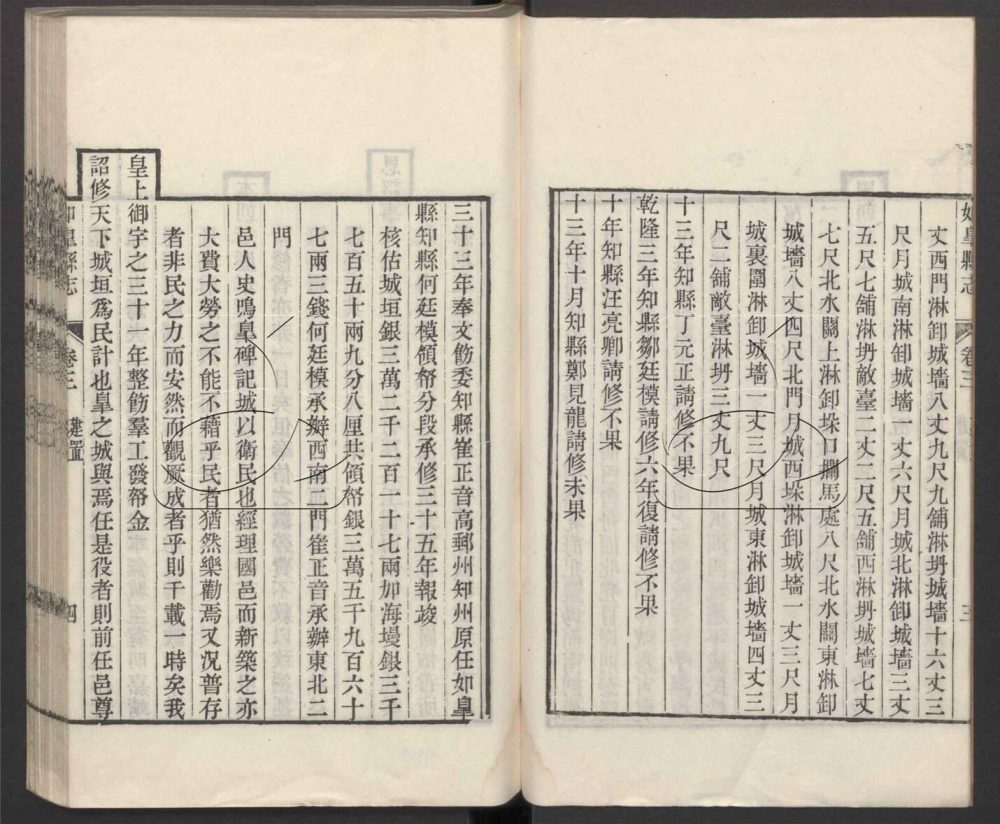 如皋縣志
卷三
建置
三
丈西門淋卸城墻八丈九尺九舖淋坍城墻十六丈三
尺月城南淋卸城墻一丈六尺月城北淋卸城墻三丈
五尺七舖淋坍敵臺二丈二尺五舖西淋坍城墻七丈
七尺北水關上淋卸垜口攔馬處八尺北水關東淋卸
城墻八丈四尺北門月城西垜淋卸城墻一丈三尺月
城裏圍淋卸城墻一丈三尺月城東淋卸城墻四丈三
尺二舖敵臺淋坍三丈九尺
十三年知縣丁元正請修不果
乾隆三年知縣鄒廷模請修六年復請修不果
十年知縣汪亮卿請修不果
十三年十月知縣鄭見龍請修未果
三十三年奉文飭委知縣崔正音高郵州知州原任如皋
縣知縣何廷模領帑分段承修三十五年報竣
核估城垣銀三萬二千二百一十七兩加海墁銀三千
七百五十兩九分八厘共領帑銀三萬五千九百六十
七兩三錢何廷模承辦西南二門崔正音承辦東北二
門
邑人史鳴皋碑記城以衛民也經理國邑而新築之亦
大費大勞之不能不藉乎民者猶然樂勸焉又况普存
者非民之力而安然而觀厥成者乎則千載一時矣我
皇上御宇之三十一年整飭羣工發帑金
詔修天下城垣爲民計也皋之城與焉任是役者則前任邑尊
如皋縣志
卷三
建置
四